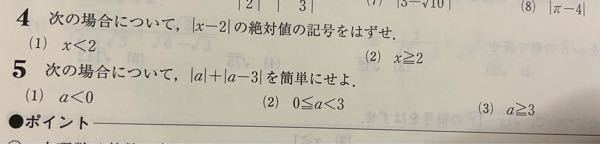 |2| |3| (7) |3−√10| (8) |π−4|
4 次の場合について，|x−2|の絶対値の記号をはずせ．
(1) x<2 (2) x≧2
5 次の場合について，|a|+|a−3|を簡単にせよ．
(1) a<0 (2) 0≦a<3 (3) a≧3
●ポイント